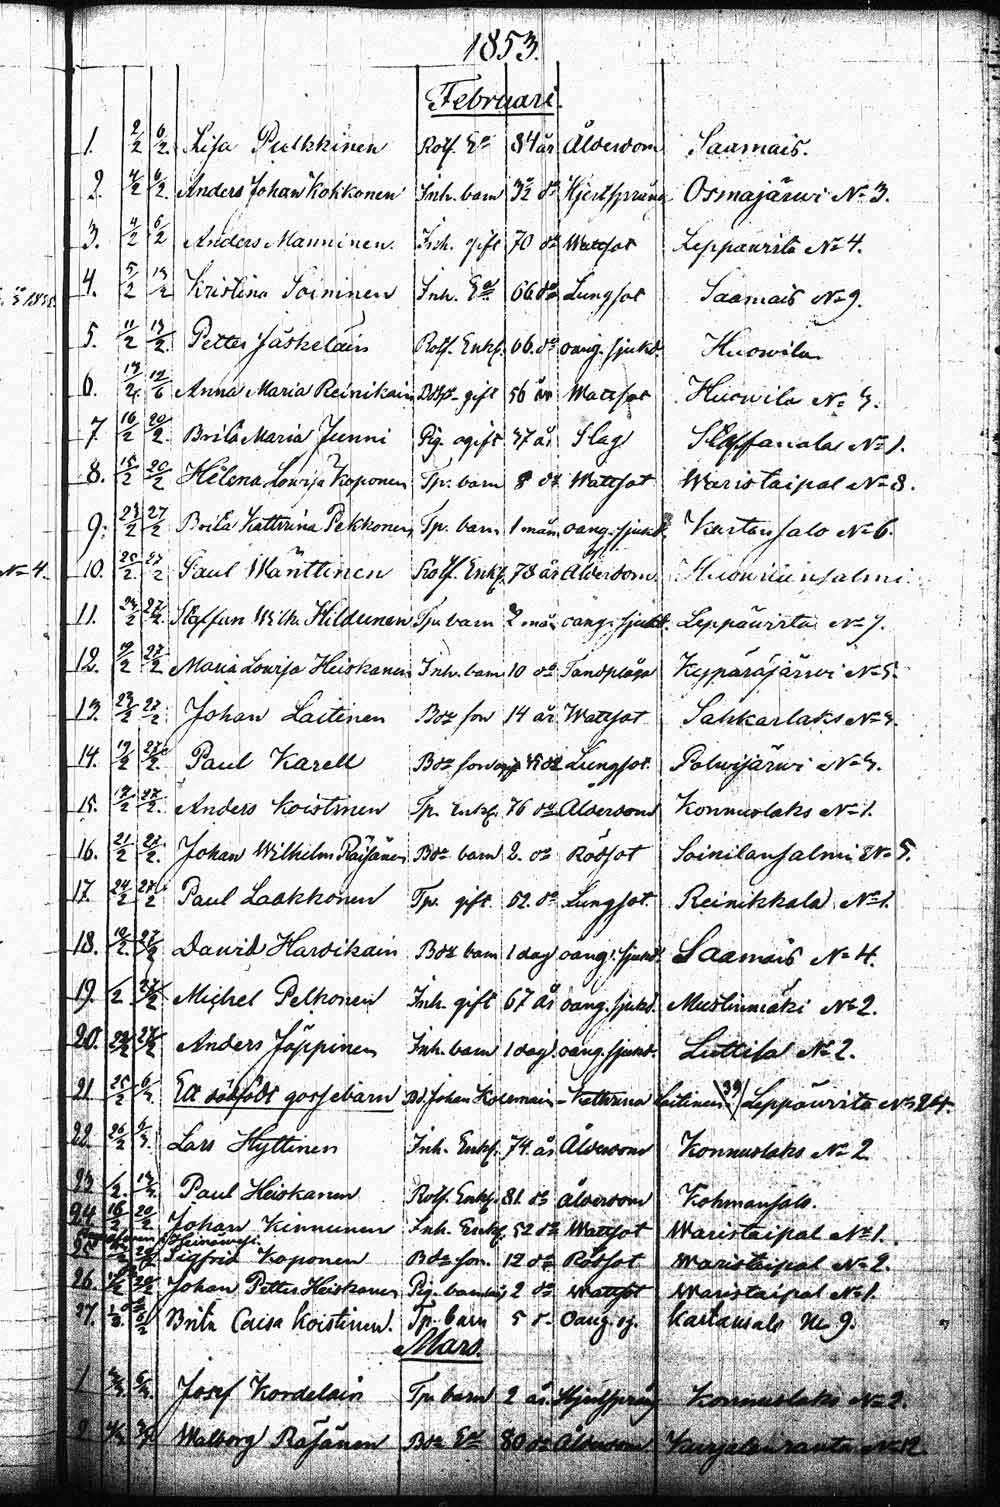 1853.
Februari.
1. 2/2 6/2 Lisa Pulkkinen Rotf. Ea 84 år Ålderdom Saamais.
2. 4/2 6/2 Anders Johan Kokkonen Inh. barn 3 1/2 do Hjertsprång Osmajärwi No 3.
3. 4/2 6/2 Anders Manninen Inh. gift 70 do Wattsot Leppäwirta No 4.
4. 5/2 13/2 Kristina Soininen Inh. Ea 66 do Lungsot Saamais No 9.
5. 11/2 13/2 Petter Jäskeläin Rotf. Enkl. 66. do oang. sjukd. Huowila
6. Anna Maria Reinikain gift 56 år Wattsot Huowila No
7. 16/2 20/2 Brita Maria Junni Pig. ogift 47 år Slag No 1.
8. 15/2 20/2 Helena Lowisa Koponen Tp. barn 8 do Wattsot Waristaipal No 8.
9. 23/2 27/2 Brita Kattrina Pekkonen Tp. barn 1 mån oang. sjukd. Kartansalo No 6.
No 4. 10. 27/2 Paul Mänttinen Rotf. Enkl. 78 år Ålderdom
11. 27/2 Staffan Wilh. Hildunen Tp. barn 2 mån oang. sjukd. Leppäwirta No
12. 27/2 Maria Lowisa Heiskanen Inh. barn 10 do Tandplåga Kypäräjärwi No 5.
13. 23/2 27/2 Johan Laitinen Bde son 14 år Wattsot Sahkarlaks No
14. 19/2 27/2 Paul Karell Bde do Lungsot. Polwijärwi No
15. 27/2 Anders Koistinen Tp. Enkl. 76 do Ålderdom Konnuslaks No 1.
16. 21/2 27/2. Johan Wilhelm Räisänen Bde barn 2. do Rödsot Soinilansalmi No 5.
17. 24/2 27/2 Paul Laakkonen Tp. gift 52. do Lungsot. Reinikkala No 1.
18. 27/2 Dawid Harvikain Bde barn 1 dag oang. sjukd. Saamais No 4.
19. /2 27/2 Michel Pelkonen Inh. gift 67 år oang. sjukd. Mustinmäki No 2.
20. 27/2 Anders Jäppinen Inh. barn 1 dag oang. sjukd. Luttila No 2.
21 25/2 6/3 Ett dödfödt gossebarn Bd. Johan Kattrina Laitinen 39 Leppäwirta No 24.
22. 26/2 Lars Hyttinen Inh. Enkl. 74. år Ålderdom Konnuslaks No 2
23 /2. Paul Heiskanen Rotf. Enkl. 81. do Ålderdom Kohmansalo.
24 16/2 20/2 Johan Kinnunen Inh. Enkl. 52 do Wattsot Waristaipal No 1.
25 Sigfrid Koponen Bde son. 12 do Rödsot Waristaipal No 2.
26. Johan Petter Heiskanen Pig. 2 do Wattsot Waristaipal No 1.
27. Brita Caisa Koistinen. Tp. barn 5 d. Oang. sj. Kartansalo No 9.
Mars.
1 Josef Kordelain Tp. barn 2 år. Hjertsprång Konnuslaks No 2.
2 Walborg Räsänen Bde Ea 80 do Ålderdom Kurjalanranta No 12